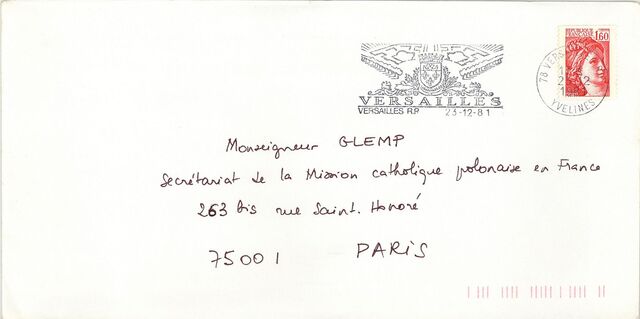 REPUBLIQUE FRANCAISE
1,60
78 VERS
YVELINES
VERSAILLES
VERSAILLES R.P. 23-12-81
Monseigneur GLEMP
Secrétariat de la Mission catholique polonaise en France
263 bis rue Saint. Honoré
75001 PARIS